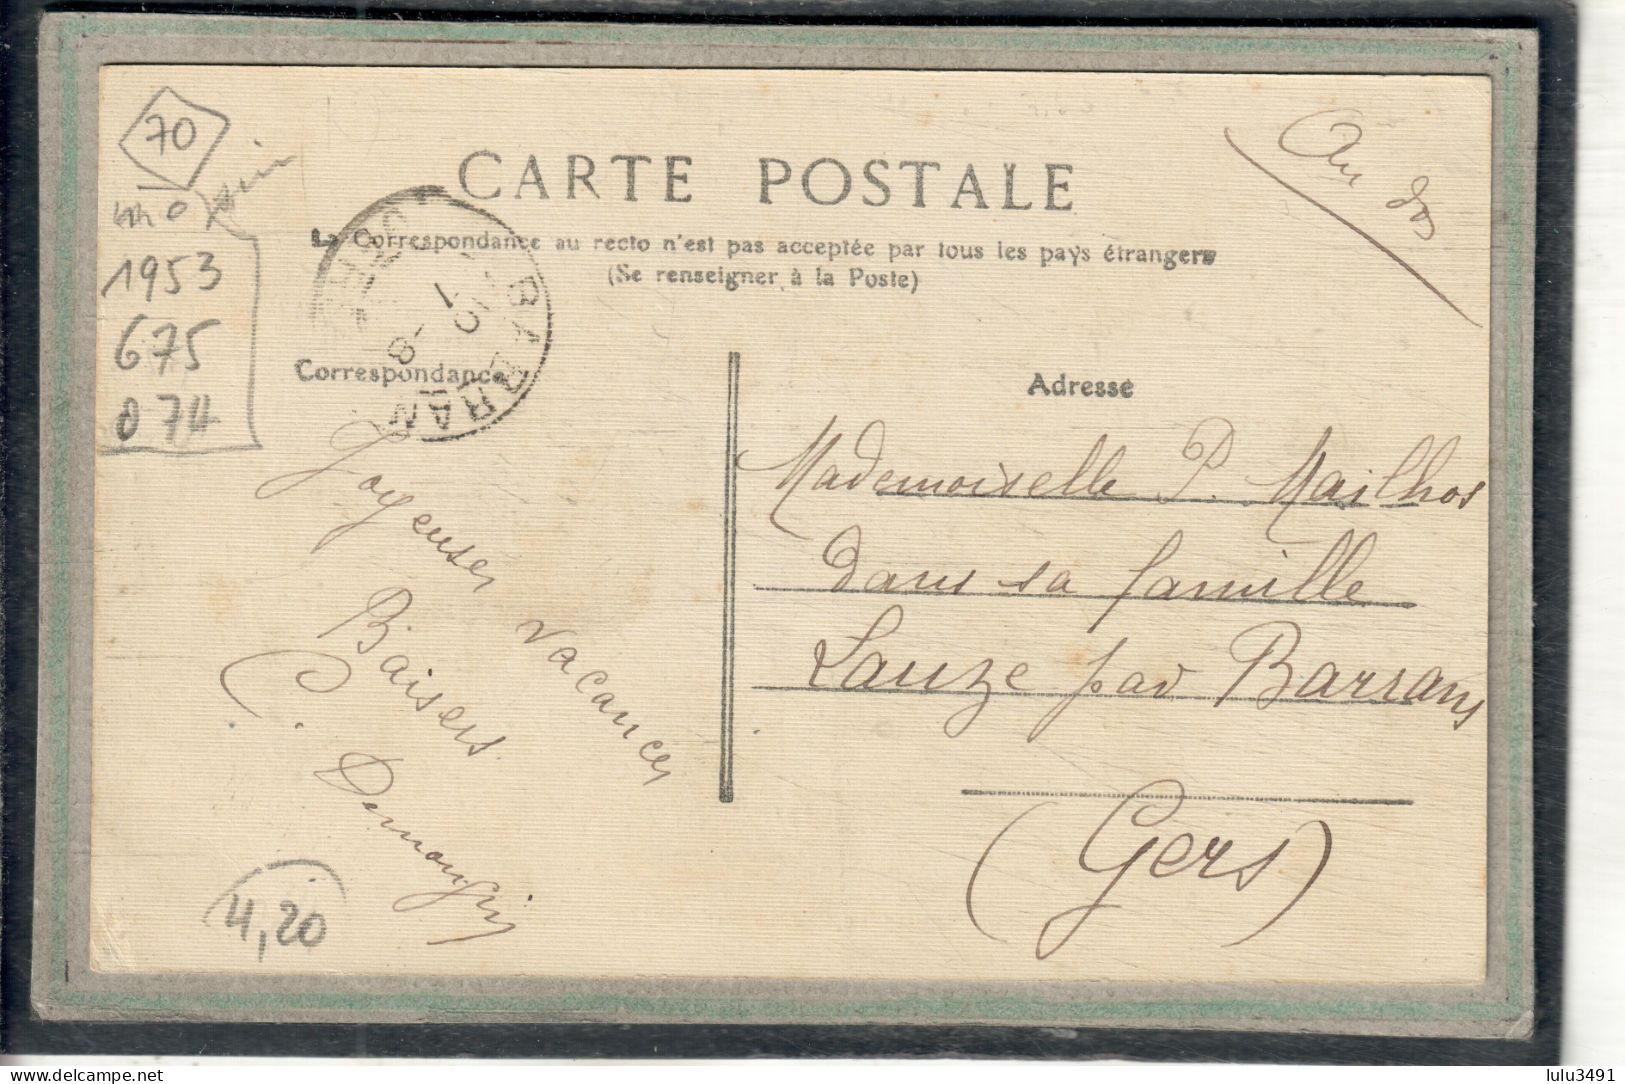 70
1953
675
074
Au dos
CARTE POSTALE
La Correspondance au recto n'est pas acceptée par tous les pays étrangers
(Se renseigner à la Poste)
BARRAN
8 - 1
10
GERS
Correspondance
Adresse
Joyeuses vacances
Baisers
C. Demougin
Mademoiselle P. Mailhos
dans sa famille
Lauze par Barran
(Gers)
4,20
www.delcampe.net
lulu3491